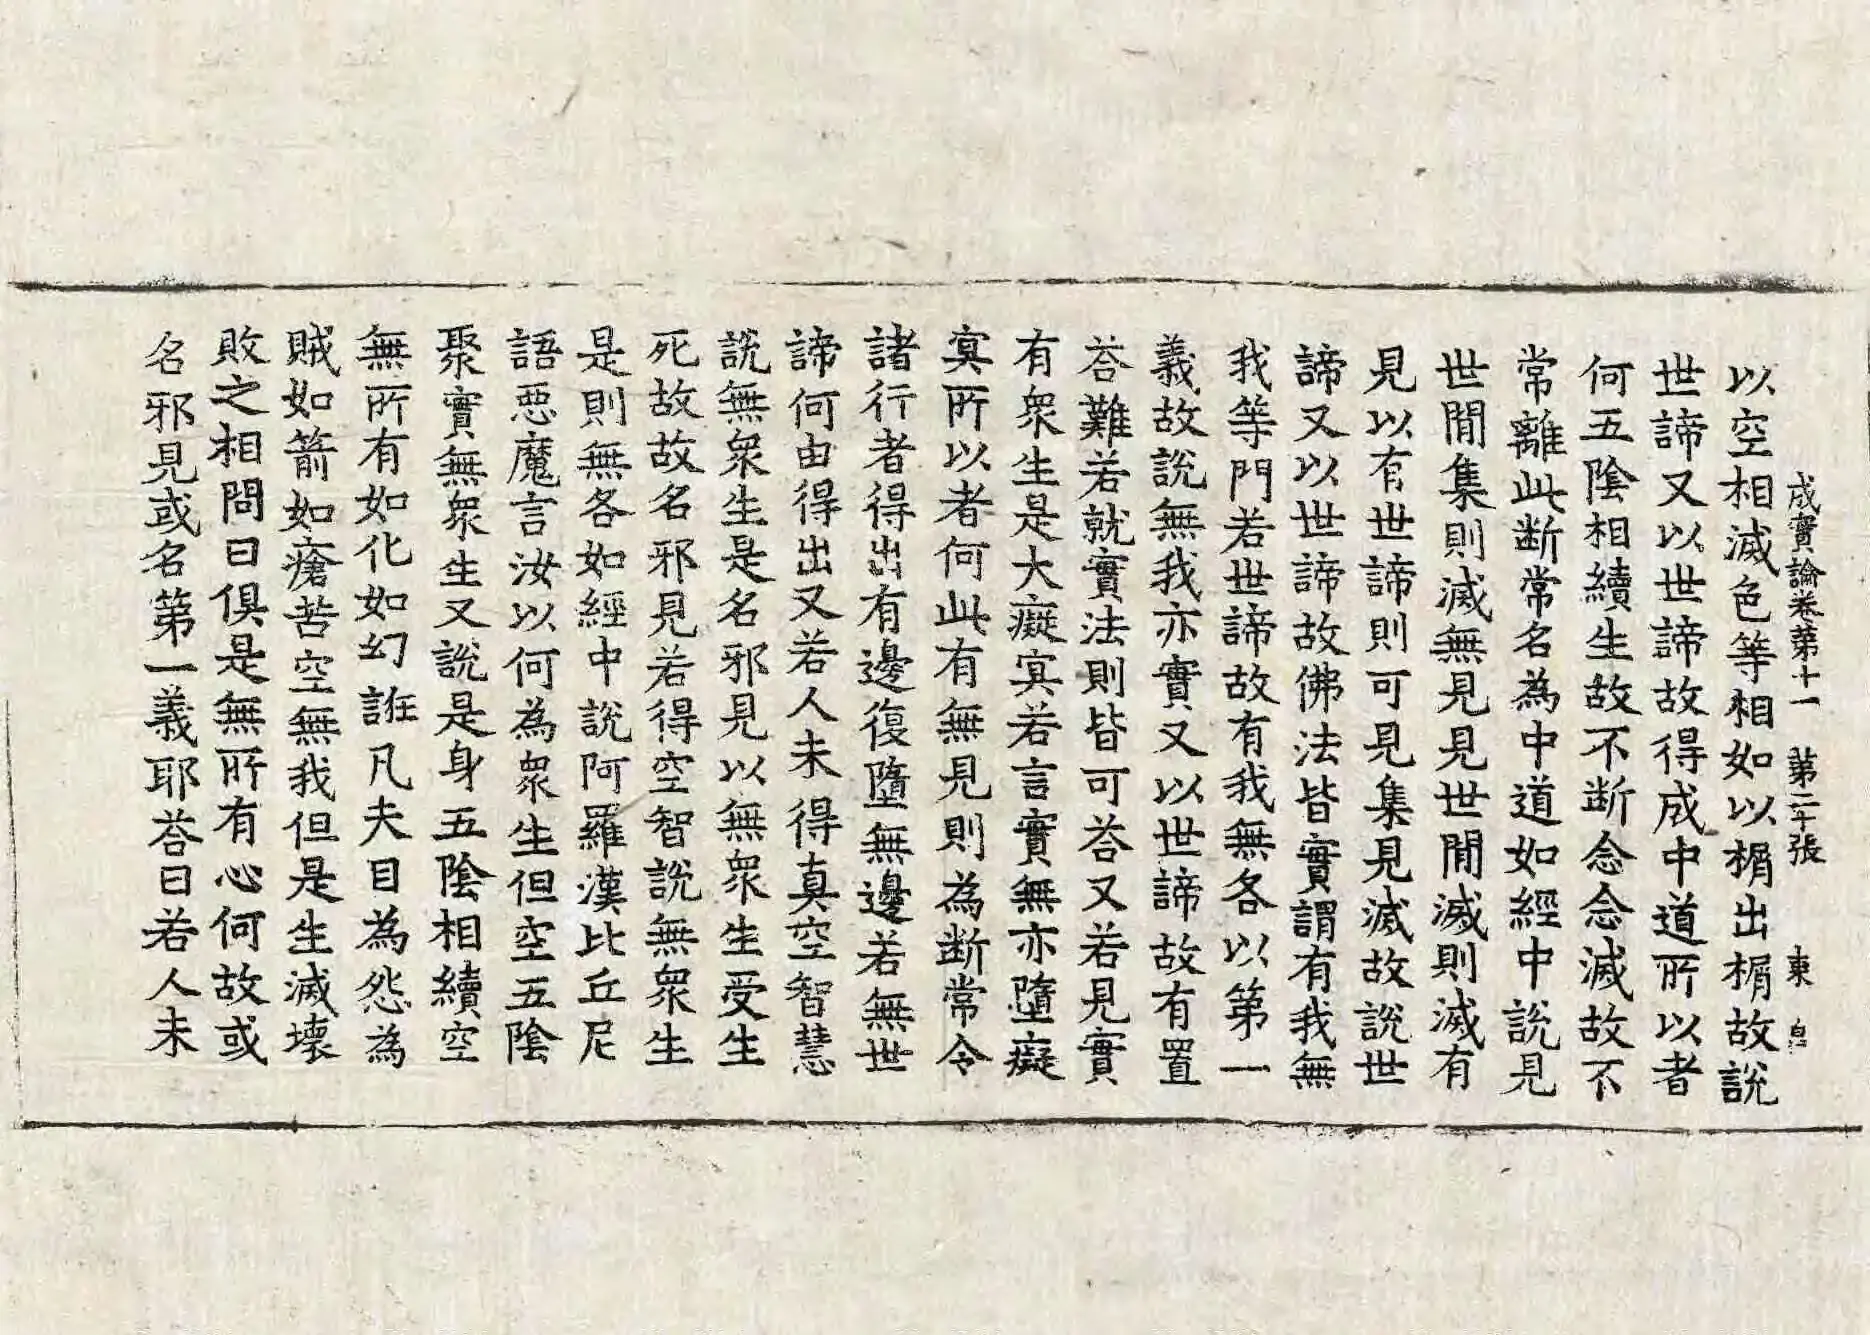 成實論卷第十一　第二十張　東　皇
以空相滅色等相如以楔出楔故說
世諦又以世諦故得成中道所以者
何五陰相續生故不断念念滅故不
常離此断常名為中道如經中說見
世閒集則滅無見見世閒滅則滅有
見以有世諦則可見集見滅故說世
諦又以世諦故佛法皆實謂有我無
我等門若世諦故有我無咎以第一
義故說無我亦實又以世諦故有置
荅難若就實法則皆可荅又若見實
有衆生是大癡冥若言實無亦墮癡
冥所以者何此有無見則為断常令
諸行者得出有邊復墮無邊若無世
諦何由得出又若人未得真空智慧
說無衆生是名邪見以無衆生受生
死故故名邪見若得空智說無衆生
是則無咎如經中說阿羅漢比丘尼
語惡魔言汝以何為衆生但空五陰
聚實無衆生又說是身五陰相續空
無所有如化如幻誑凡夫目為怨為
賊如箭如瘡苦空無我但是生滅壞
敗之相問曰俱是無所有心何故或
名邪見或名第一義耶荅曰若人未